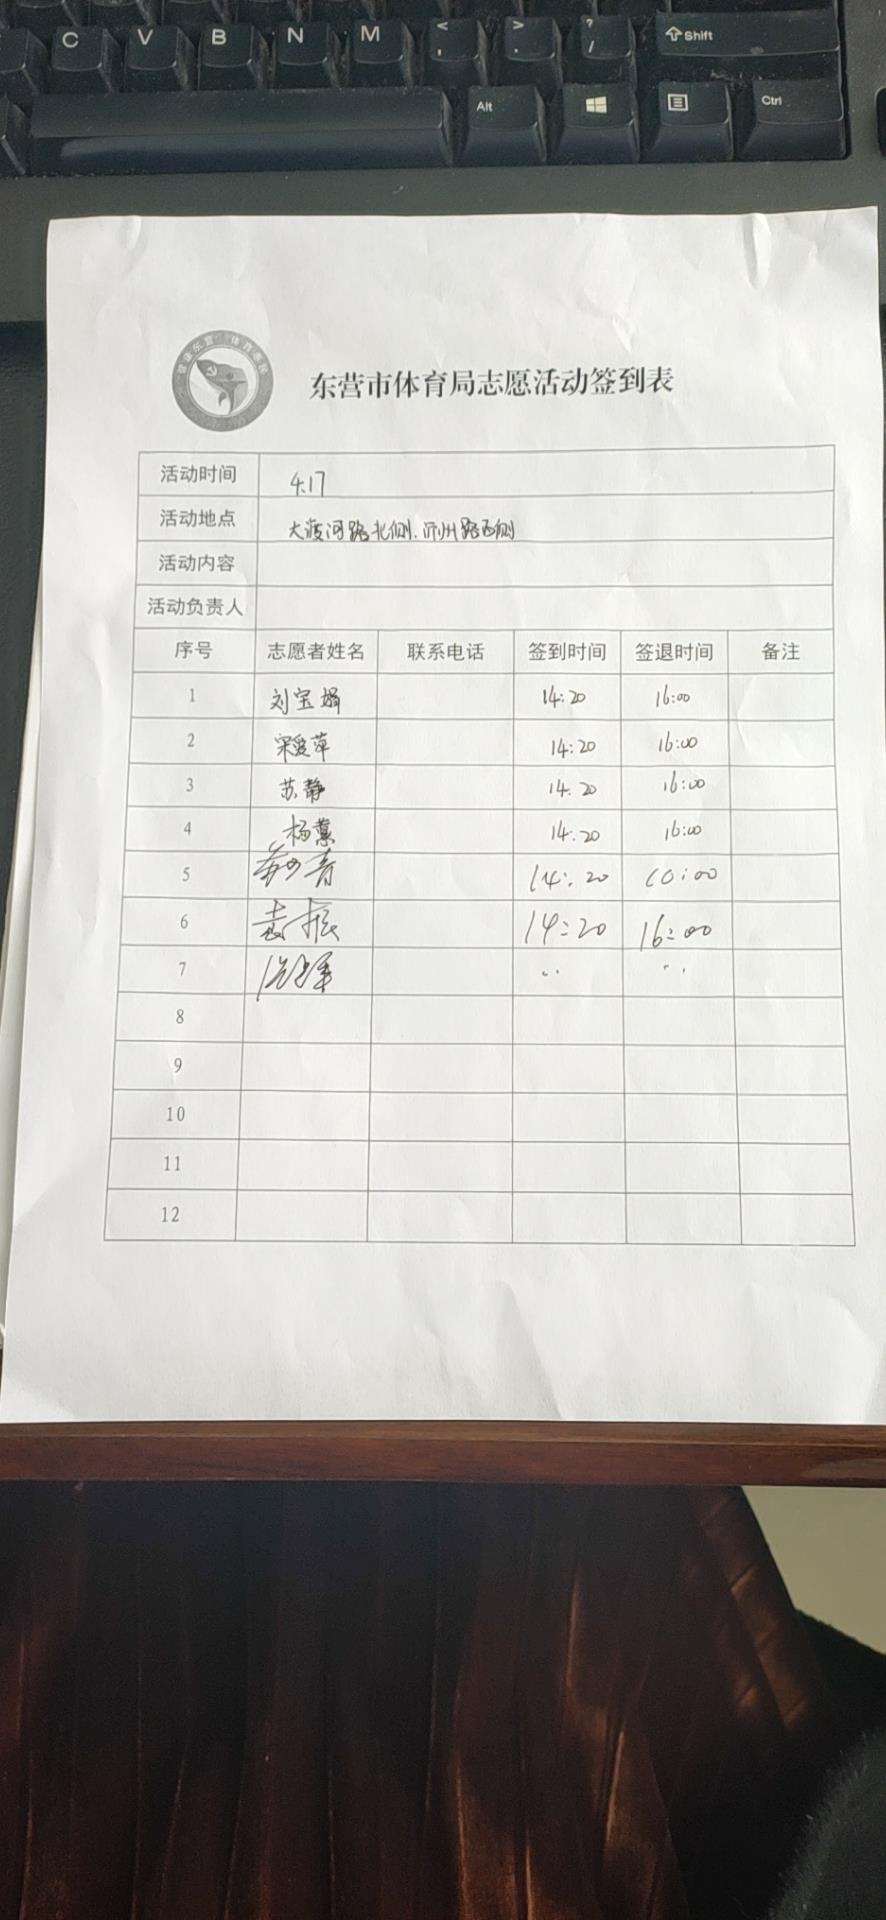 C V B N M < , > . ? / Shift
Alt Ctrl
东营市体育局志愿活动签到表
活动时间 4.17
活动地点 大渡河路北侧.沂州路西侧
活动内容
活动负责人
序号 志愿者姓名 联系电话 签到时间 签退时间 备注
1 刘宝娟 14:20 16:00
2 宋爱萍 14:20 16:00
3 苏静 14:20 16:00
4 杨蕙 14:20 16:00
5 14:20 16:00
6 袁振 14:20 16:00
7
8
9
10
11
12